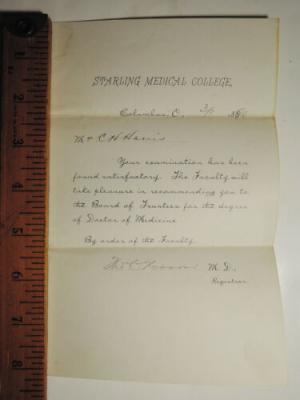 STARLING MEDICAL COLLEGE,
Columbus, O.
Mr C H Harris
Your examination has been
found satisfactory. The Faculty will
take pleasure in recommending you to
the Board of Trustees for the degree
of Doctor of Medicine
By order of the Faculty
M. D.,
Registrar.
1
2
3
4
5
6
7
8